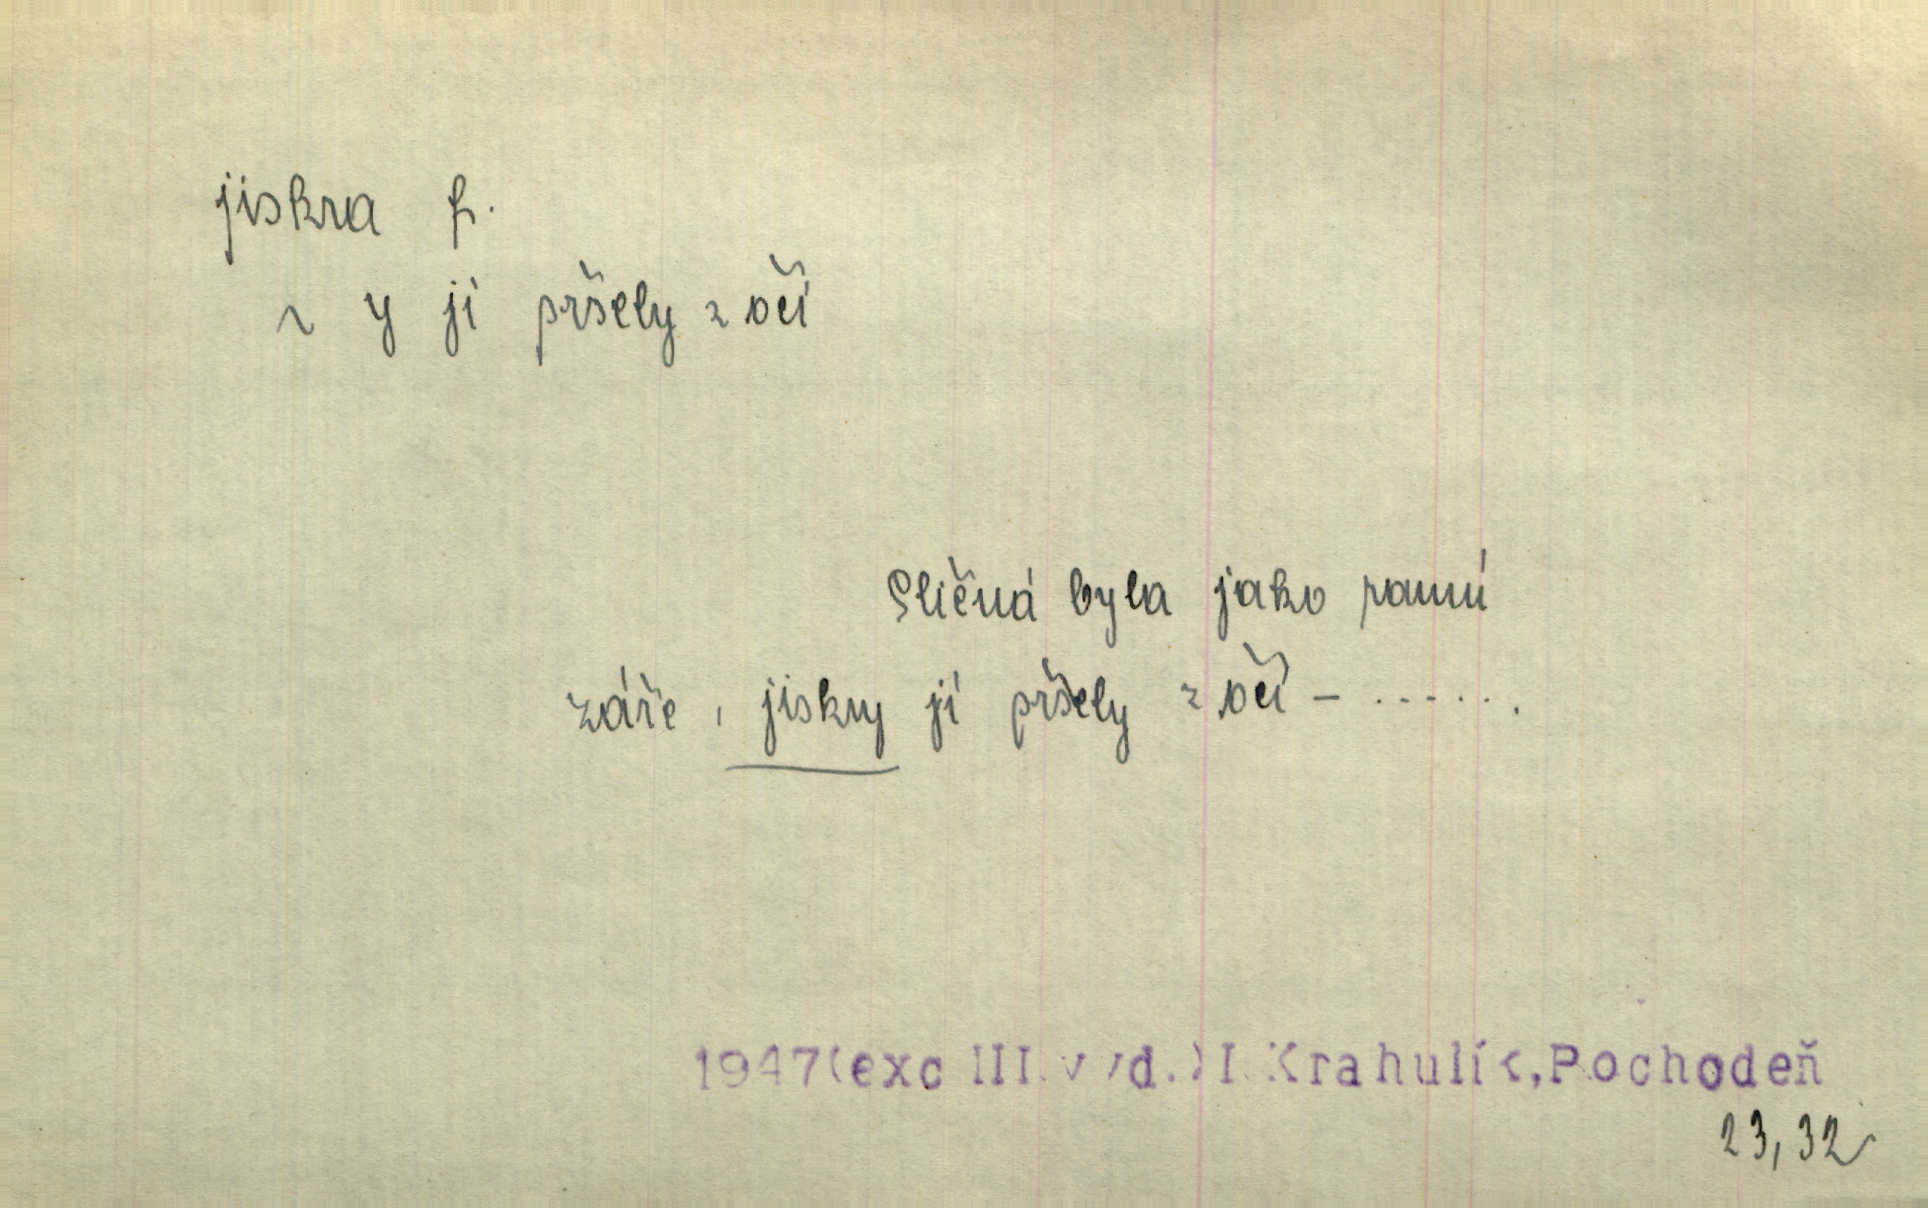 jiskra f.
~ y jí pršely z očí
Sličná byla jako ranní
záře, jiskry jí pršely z očí – ......
1947(exc III.vyd.)I.Krahulík,Pochodeň
23,32